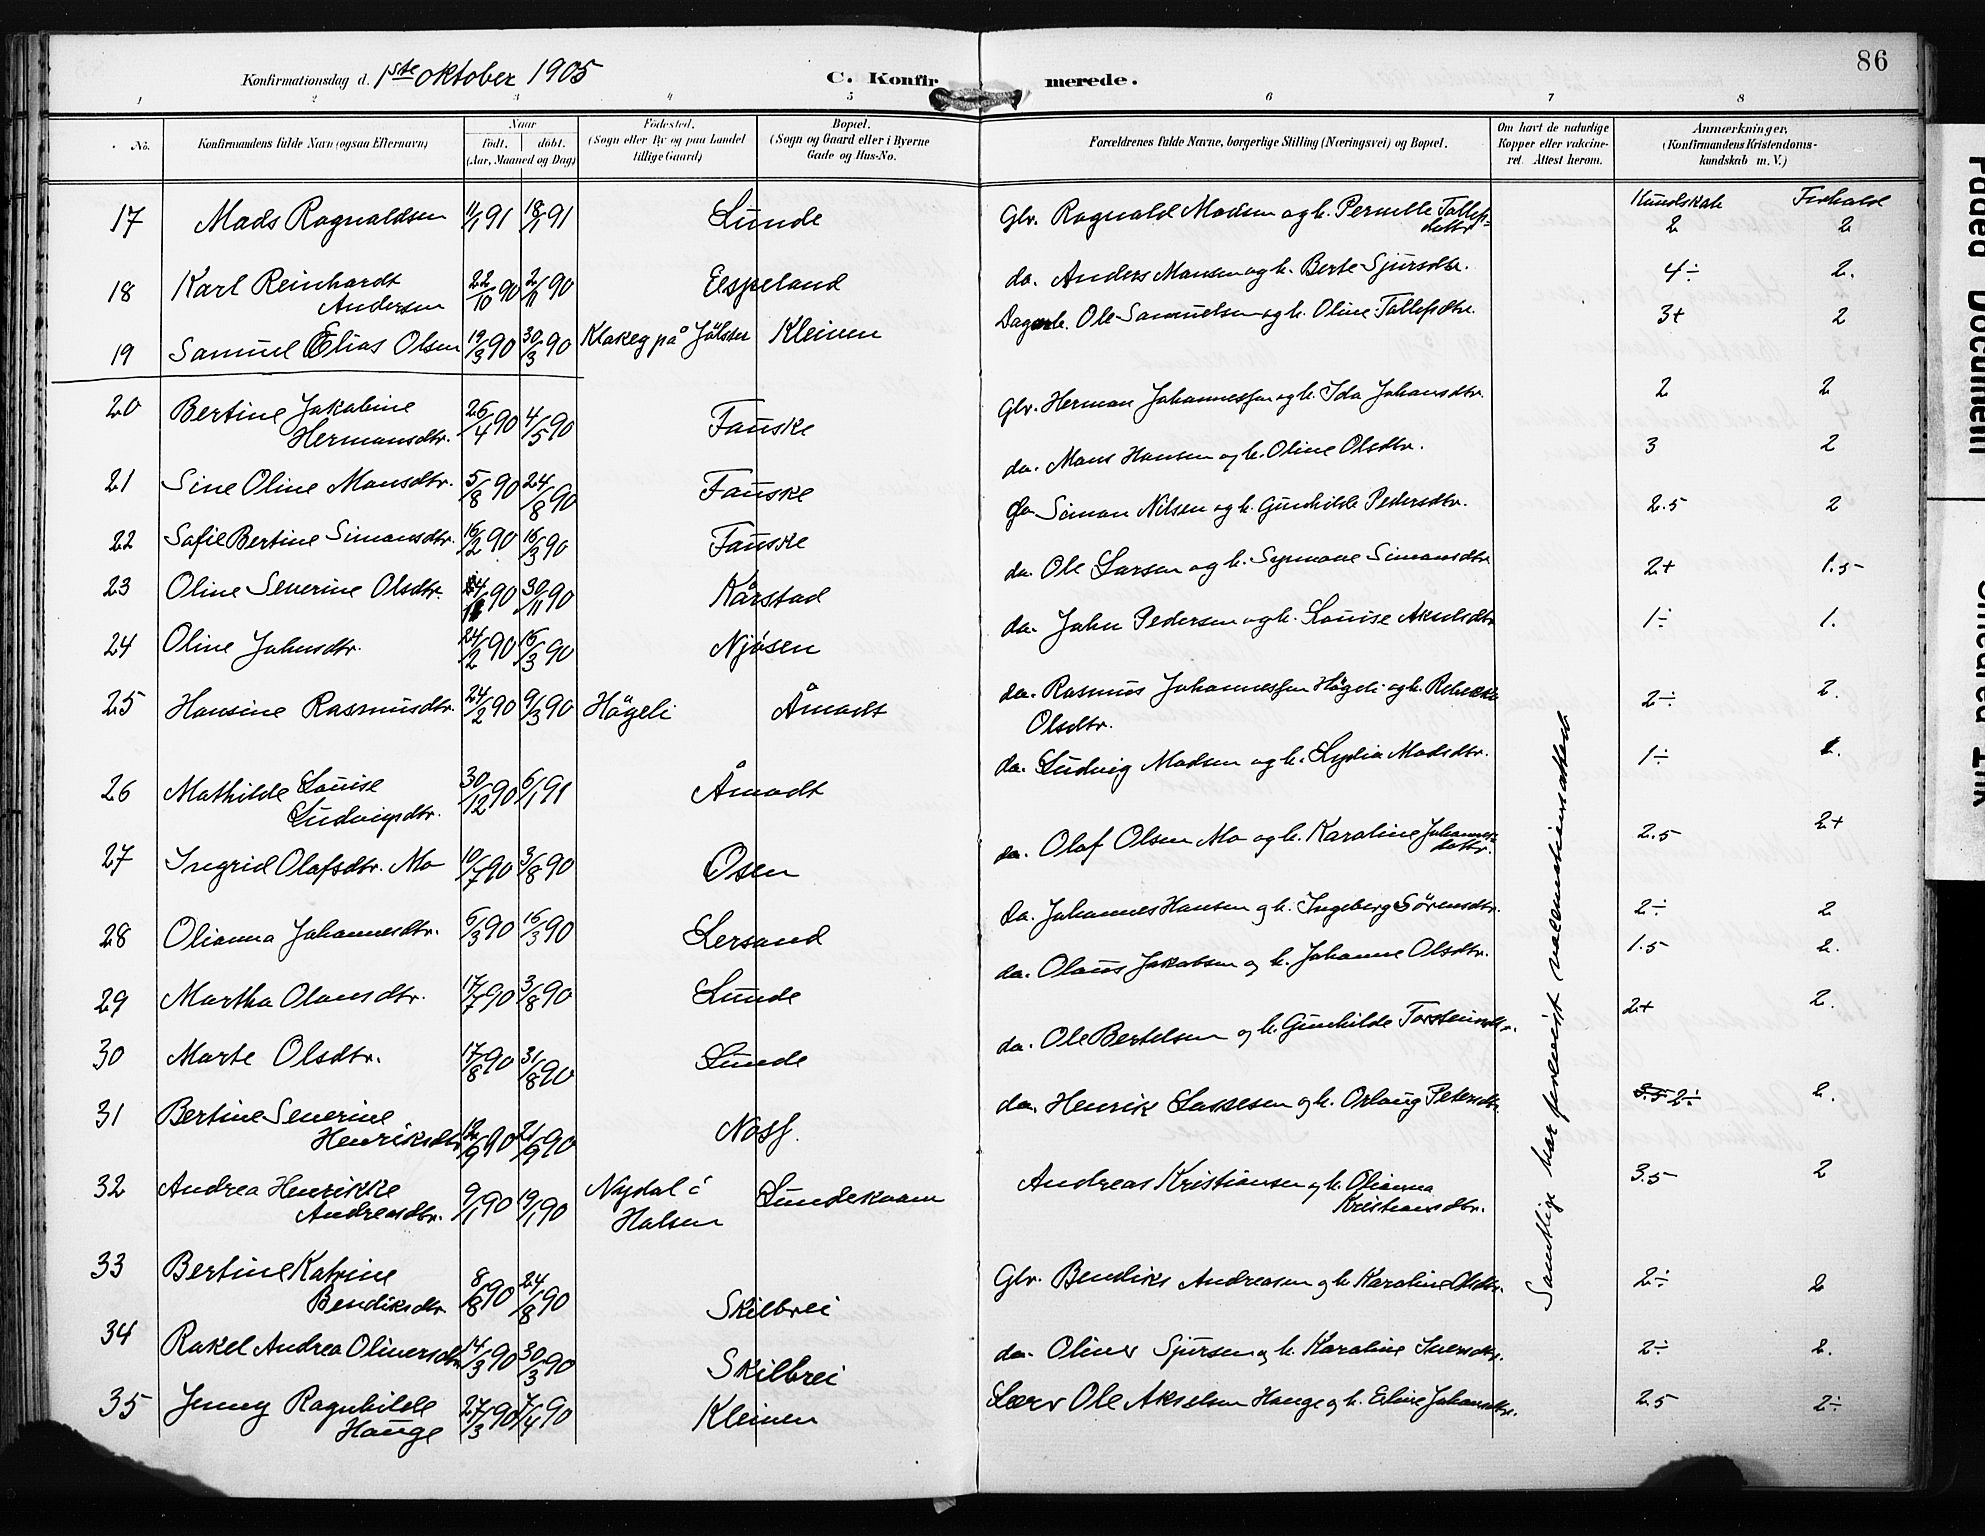 86
Konfirmationsdag d. 1ste oktober 1905 C. Konfirmerede.
1 2 3 4 5 6 7 8
No. Konfirmandens fulde Navn (ogsaa Efternavn) Naar født. døbt. (Aar, Maaned og Dag) Fødested. (Sogn eller By og paa Landet tillige Gaard) Bopæl. (Sogn og Gaard eller i Byerne Gade og Hus-No. Forældrenes fulde Navne, borgerlige Stilling (Næringsvei) og Bopæl. Om havt de naturlige Kopper eller vakcineret. Attest herom. Anmærkninger, (Konfirmandens Kristendomskundskab m. V.)
Kundskab Forhold
17 Mads Ragnaldsen 11/1 91 18/1 91 Lunde Gbr. Ragnald Madsen og h. Pernille Tollefsdottr 2 2
18 Karl Reinhardt Andersen 22/10 90 2/11 90 Espeland do. Anders Monsen og h. Berte Sjursdtr. 4÷ 2.
19 Samuel Elias Olsen 19/3 90 30/3 90 Klakeg på Jölster Kleinen Ole Samuelsen og h. Oline Tollefsdtr. 3+ 2
20 Bertine Jakobine Hermansdtr. 26/4 90 4/5 90 Fauske Gbr. Herman Johannessen og h. Ida Johansdtr. 2 2
21 Sine Oline Monsdtr. 5/8 90 24/8 90 Fauske do. Mons Hansen og h. Oline Olsdtr. 3 2
22 Sofie Bertine Simonsdtr. 16/2 90 16/3 90 Fauske do Simon Nilsen og h. Gunhilde Pedersdtr. 2.5 2
23 Oline Severine Olsdtr. 90 30/11 90 Kårstad do. Ole Larsen og h. Synnøve Simonsdtr 2+ 1.5
24 Oline Johnsdtr. 24/2 90 16/3 90 Njøsen do. John Pedersen og h. Louise Akselsdtr 1÷ 1.
25 Hansine Rasmusdtr. 24/2 90 9/3 90 Högeli Åmodt do. Rasmus Johannessen Högeli og h. Rebekka Olsdtr. 2÷ 2.
26 Mathilde Louise Ludvigsdtr. 30/12 90 6/1 91 Åmodt do. Ludvig Madsen og h. Lydia Madsdtr. 1÷
27 Ingrid Olafsdtr. Mo 10/7 90 3/8 90 Osen do. Olaf Olsen Mo og h. Karoline Johannesdottr. 2.5 2+
28 Olianna Johannesdtr. 6/3 90 16/3 90 Lersand Do. Johannes Hansen og h. Ingeborg Sörensdtr. 2÷ 2
29 Martha Olausdtr. 17/7 90 3/8 90 Lunde do. Olaus Jakobsen og h. Johanne Olsdtr. 1.5 2.
30 Marte Olsdtr. 17/8 90 31/8 90 Lunde do. Ole Bertelsen og h. Gunhilde Torsteinsdtr. 2+ 2.
31 Bertine Severine Henriksdtr 12/9 90 21/9 90 do. Henrik Lassesen og h. Orlaug Petersdtr 3.5 2÷ 2.
32 Andrea Henrikke Andreasdtr. 9/1 90 19/1 90 Nydal i Holsen Lundekvam Andreas Kristiansen og h. Olianna Kristiansdtr. 3.5 2
33 Bertine Katrine Bendiksdtr. 8/8 90 24/8 90 Skilbrei Gbr. Bendiks Andreasen og h. Karoline Olsdtr. 2÷ 2
34 Rakel Andrea Oliversdtr 14/3 90 30/3 90 Skilbrei do. Oliver Sjursen og h. Karoline Iversdtr. 2÷ 2.
35 Jenny Ragnhilde Hauge 27/3 90 7/4 90 Kleinen Lærer Ole Akselsen Hauge og h. Eline Johansdtr. 2.5 2÷
Samtlige har forevist vaccinationsattest
Faded Document
Smeared Ink